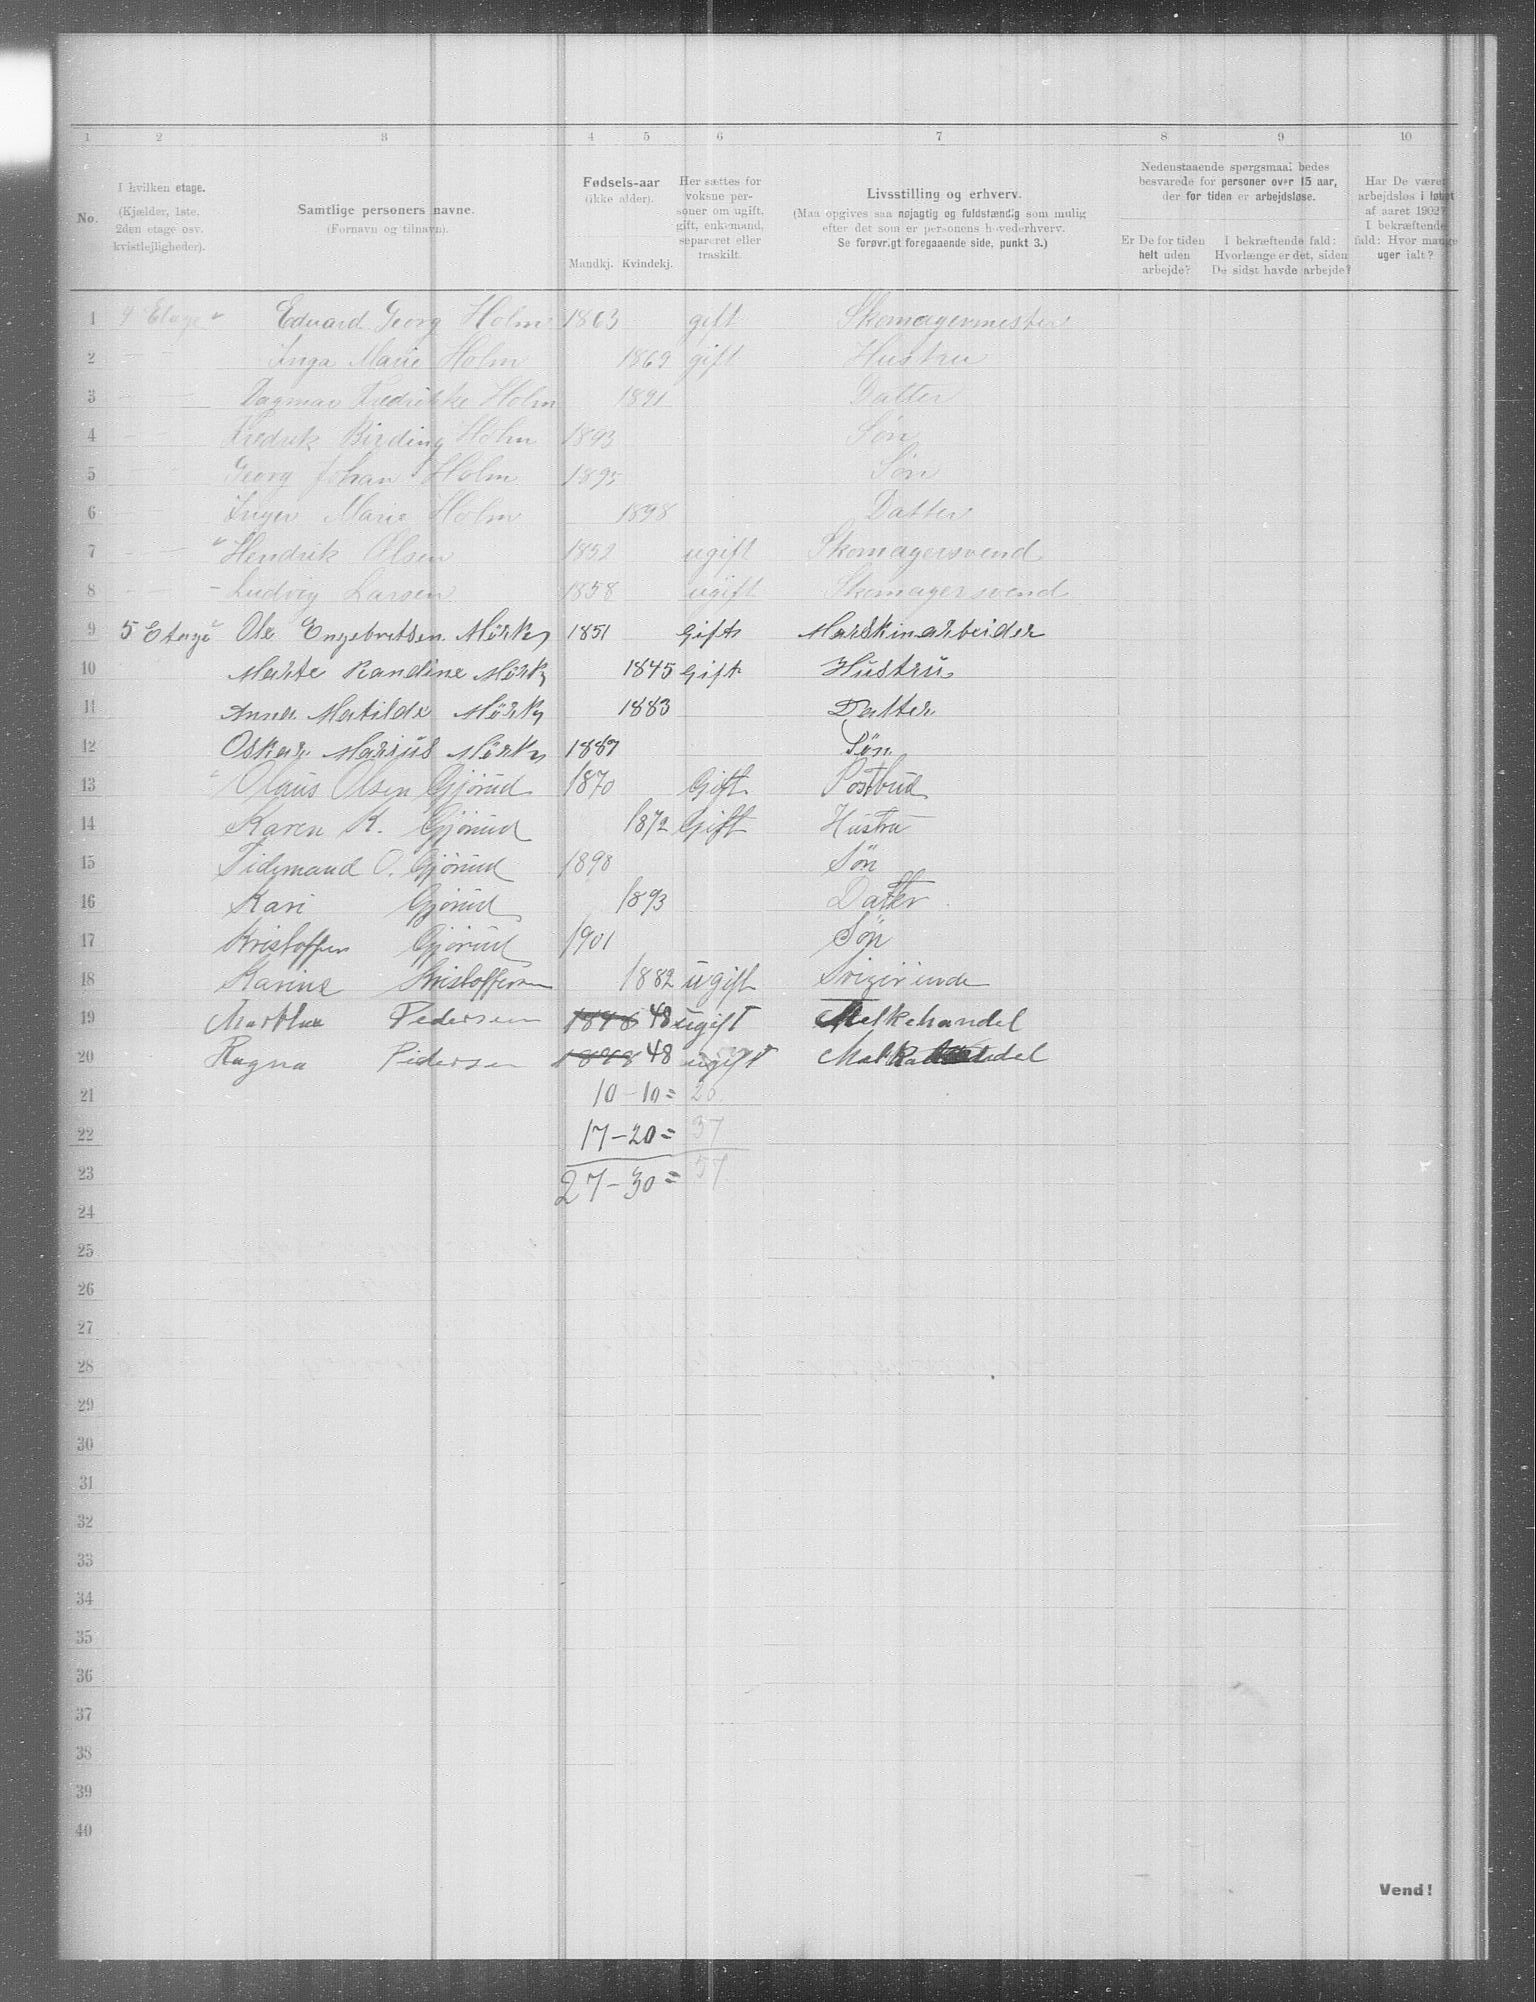 1 2 3 4 5 6 7 8 9 10
No.
I hvilken etage.
(Kjælder, 1ste, 2den etage osv. kvistlejligheder).
Samtlige personers navne.
(Fornavn og tilnavn).
Fødsels-aar
(ikke alder).
Mandkj. Kvindekj.
Her sættes for voksne personer om ugift, gift, enkemand, separeret eller fraskilt.
Livsstilling og erhverv.
(Maa opgives saa nøjagtig og fuldstændig som mulig efter det som er personens hovederhverv.
Se forøvrigt foregaaende side, punkt 3.)
Nedenstaaende spørgsmaal bedes besvarede for personer over 15 aar, der for tiden er arbejdsløse.
Er De for tiden helt uden arbejde?
I bekræftende fald: Hvorlænge er det, siden De sidst havde arbejde?
Har De været arbejdsløs i løbet af aaret 1902? I bekræftende fald: Hvor mange uger ialt?
1 4 Etage Eduard Georg Holm 1863 gift Skomagermester
2 Inga Marie Holm 1869 gift Hustru
3 Dagmar Fredrikke Holm 1891 Datter
4 Fredrik Birding Holm 1893 Søn
5 Georg Johan Holm 1895 Søn
6 Inger Marie Holm 1898 Datter
7 Hendrik Olsen 1852 ugift Skomagersvend
8 Ludvig Larsen 1858 ugift Skomagersvend
9 5 Etage Ole Engebretsen Mørk 1851 Gift Marskinarbeider
10 Marte Randine Mørk 1845 Gift Hustru
11 Anna Matilde Mørk 1883 Datter
12 Oskar Marius Mørk 1887 Søn
13 Olaus Olsen Gjørud 1870 Gift Postbud
14 Karen K. Gjørud 1872 Gift Hustru
15 Tidemand O. Gjørud 1898 Søn
16 Kari Gjørud 1893 Datter
17 Kristoffer Gjørud 1901 Søn
18 Karine Kristoffersen 1882 ugift
19 Marthe Pedersen 1848 48 ugift Melkehandel
20 Ragna Pedersen 1848 48 ugift
21 10-10= 20
22 17-20= 37
23 27-30= 57
24
25
26
27
28
29
30
31
32
33
34
35
36
37
38
39
40
Vend!